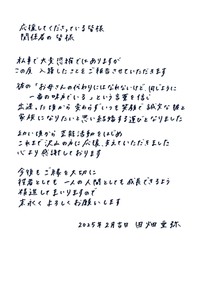 応援してくださっている皆様
関係者の皆様
私事で大変恐縮ではありますが
この度 入籍したことをご報告させていただきます
彼の「お母さんの代わりにはなれないけど、同じように
一番の味方でいる」という言葉を信じ
出逢った頃から変わらずいつも笑顔で誠実な彼と
家族になりたいと思い結婚する運びとなりました
幼い頃から芸能活動をはじめ
これまで沢山の方に応援、支えていただきました
心より感謝しております
今後もご縁を大切に
役者としても 一人の人間としても成長できるよう
精進してまいりますので
末永くよろしくお願いします
2025年2月吉日 田畑 亜弥